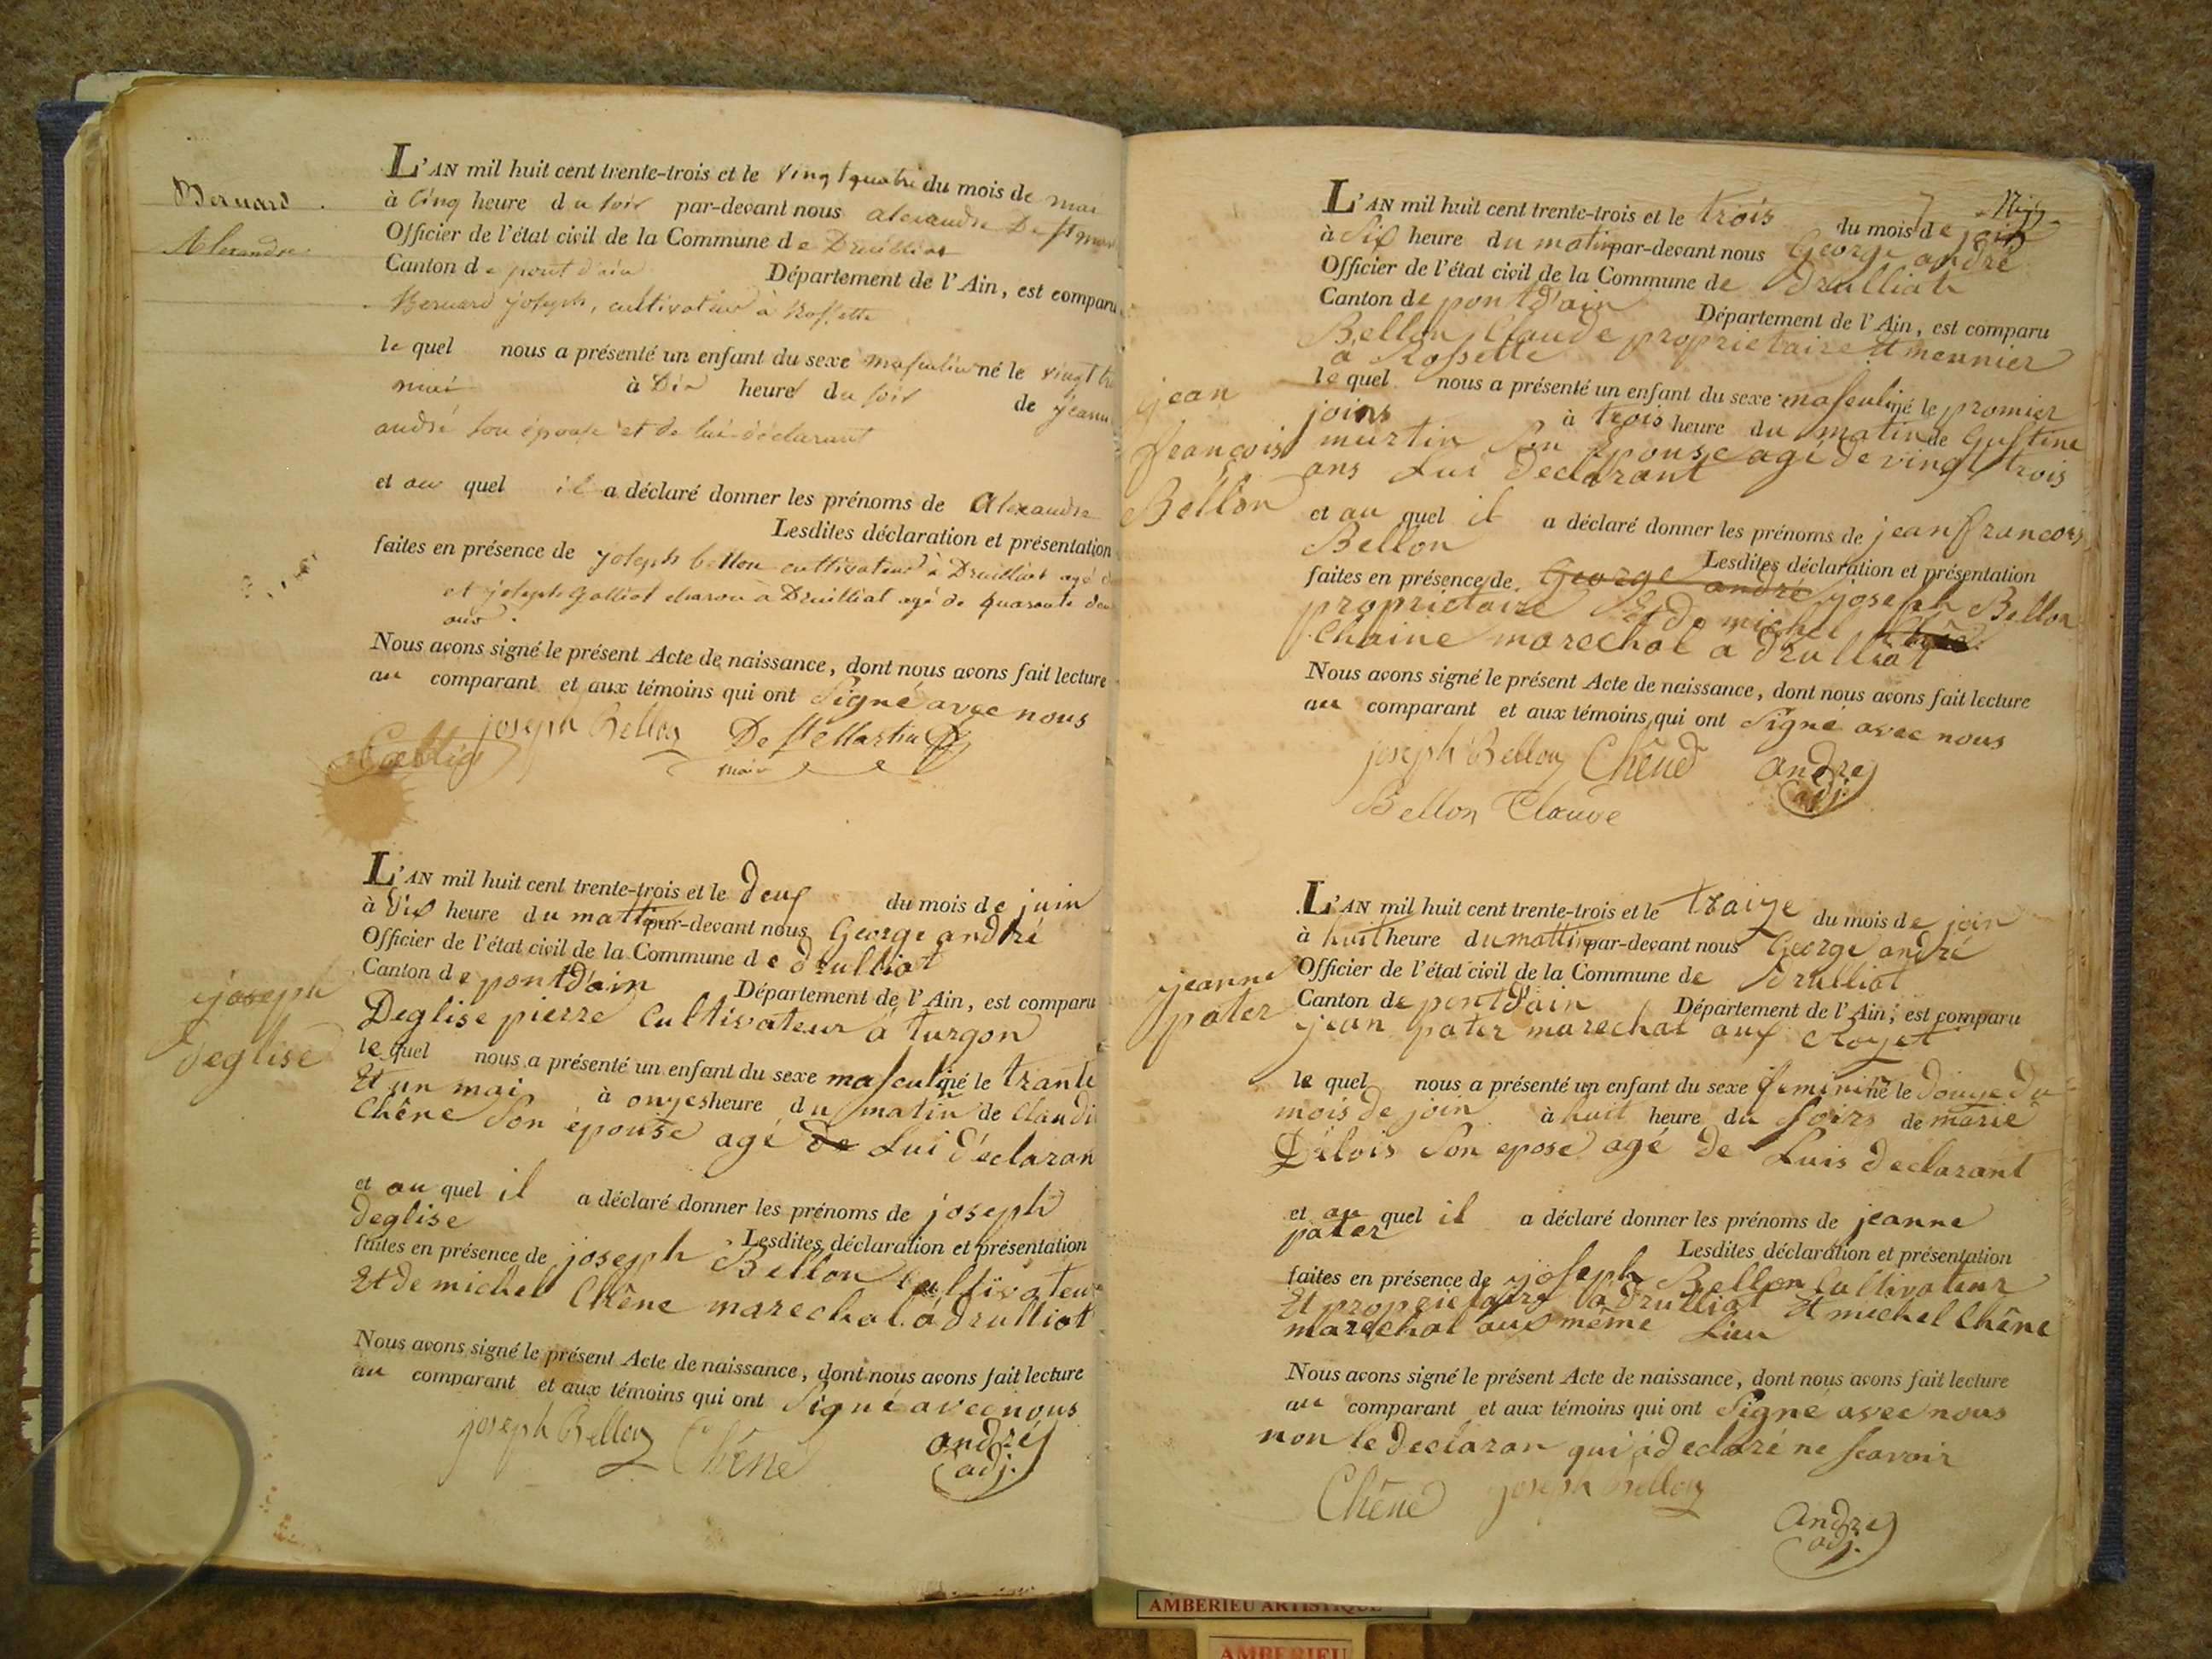 Bernard
Alexandre
L'AN mil huit cent trente-trois et le vingt quatre du mois de mai
à cinq heure du soir par-devant nous alexandre De st mar
Officier de l'état civil de la Commune de Druillias
Canton de pont d'ain Département de l'Ain, est comparu
Bernard joseph, cultivateur à Rossette
le quel nous a présenté un enfant du sexe masculin né le vingt tr
mai à Dix heures du soir de jeann
andré son épouse et de lui déclarant
et au quel il a déclaré donner les prénoms de Alexandre
Lesdites déclaration et présentation
faites en présence de joseph bellon cultivateur à Druilliat agé d
et joseph Galliot charon à Druilliat agé de quarante deu
ans.
Nous avons signé le présent Acte de naissance, dont nous avons fait lecture
au comparant et aux témoins qui ont Signé avec nous
joseph Bellon De St Martin
maire
joseph
deglise
L'AN mil huit cent trente-trois et le deux du mois de juin
à dix heure du mattin par-devant nous George andré
Officier de l'état civil de la Commune de drulliat
Canton de pont D'ain Département de l'Ain, est comparu
Deglise pierre Cultivateur à turgon
le quel nous a présenté un enfant du sexe masculin né le trante
Et un mai à onzes heure du matin de Claudi
Chêne Son épouse agé de Lui déclaran
et au quel il a déclaré donner les prénoms de joseph
deglise
Lesdites déclaration et présentation
faites en présence de joseph Bellon Cultivateur
Et de michel Chêne marechal à drulliat
Nous avons signé le présent Acte de naissance, dont nous avons fait lecture
au comparant et aux témoins qui ont Signé avec nous
joseph Bellon Chêne andré
adj.
jean
françois
Bellon
L'AN mil huit cent trente-trois et le trois du mois de join
à Six heure du matin par-devant nous George andré
Officier de l'état civil de la Commune de drulliat
Canton de pont D'ain Département de l'Ain, est comparu
Bellon Claude proprietaire Et meunier
a Rossette
le quel nous a présenté un enfant du sexe masculin né le promier
joins à trois heure du matin de Gustine
murtin Son Epouse agé de vingt trois
ans Lui declarant
et au quel il a déclaré donner les prénoms de jean francois
Bellon
Lesdites déclaration et présentation
faites en présence de George andré joseph Bellon
proprietaire Et de michel
Chaine marechal a drulliat
Nous avons signé le présent Acte de naissance, dont nous avons fait lecture
au comparant et aux témoins qui ont Signé avec nous
joseph Bellon Chêne andre
adj.
Bellon Claude
jeanne
pater
L'AN mil huit cent trente-trois et le traize du mois de join
à huit heure du mattin par-devant nous George andré
Officier de l'état civil de la Commune de drulliat
Canton de pont D'ain Département de l'Ain, est comparu
jean pater marechal aux Royet
le quel nous a présenté un enfant du sexe feminin né le douze du
mois de join à huit heure du soirs de marie
Délois Son epose agé de Luis declarant
et au quel il a déclaré donner les prénoms de jeanne
pater
Lesdites déclaration et présentation
faites en présence de joseph Bellon Cultivateur
Et proprietaire a drulliat Et michel Chêne
marechal aux même Lieu
Nous avons signé le présent Acte de naissance, dont nous avons fait lecture
au comparant et aux témoins qui ont Signé avec nous
non le declaran qui à declaré ne scavoir
Chêne joseph Bellon
andre
adj.
AMBERIEU ARTISTIQUE
AMBERIEU